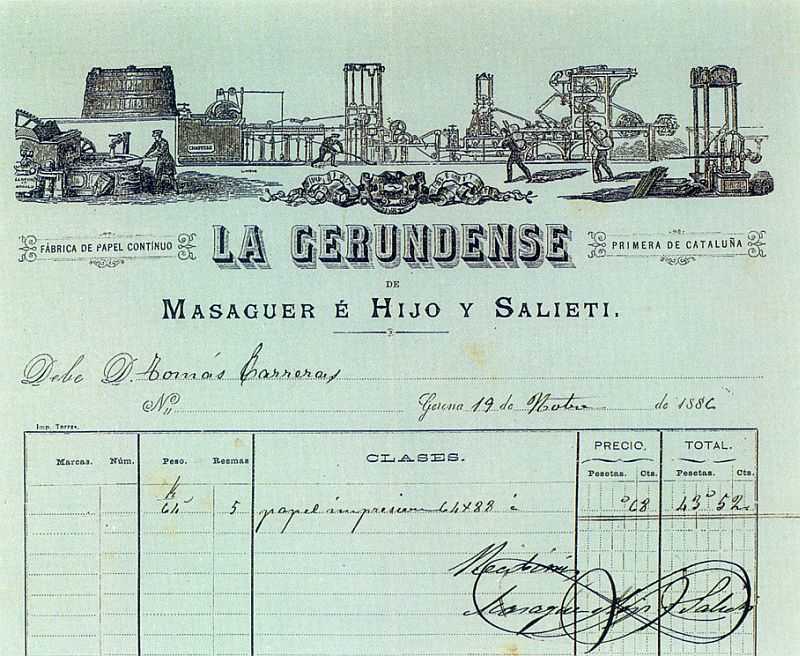 CHAPELLE
FÁBRICA DE PAPEL CONTÍNUO
LA GERUNDENSE
PRIMERA DE CATALUÑA
DE
MASAGUER É HIJO Y SALIETI.
Debe D. Tomás Carreras
Nº
Gerona 19 de Nobre de 1886
Imp. Torres.
Marcas. Núm. Peso. Resmas CLASES. PRECIO. TOTAL.
Pesetas. Cts. Pesetas. Cts.
k
64 5 papel impresion 64x88 á º68 43º52
Recibimos
Masaguer Hijo y Salieti